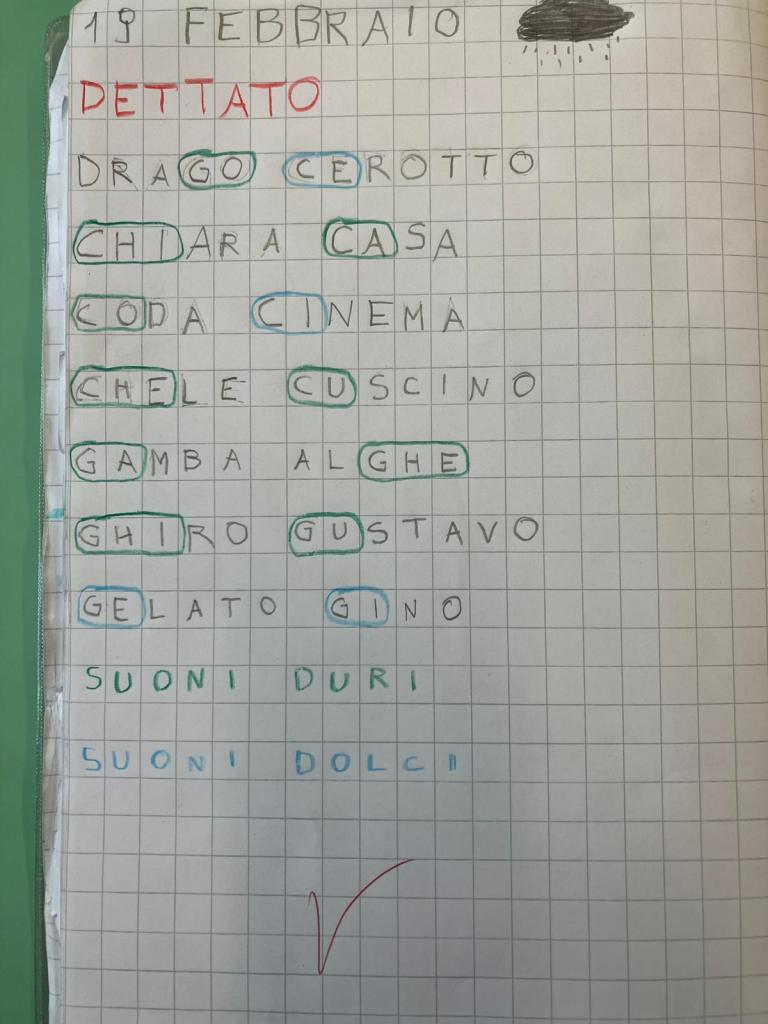 19 FEBBRAIO
DETTATO
DRAGO CEROTTO
CHIARA CASA
CODA CINEMA
CHELE CUSCINO
GAMBA ALGHE
GHIRO GUSTAVO
GELATO GINO
SUONI DURI
SUONI DOLCI